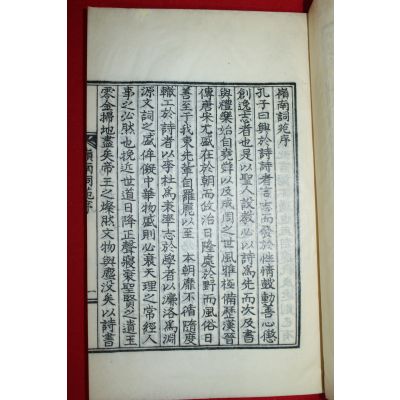 嶺南詞苑序
孔子曰興於詩詩者主志而發於性情鼓動善心懲
創逸志者也是以聖人設教必以詩爲先而次及書
與禮樂始自堯舜以及成周之世風雅極備歷漢晉
傳唐宋尤盛在於朝而政治日隆處於野而風俗日
善至于我東先輩自羅麗以至 本朝靡不循隨度
轍工於詩者以李杜爲表準志於學者以濂洛爲淵
源文詞之盛侔儗中華物盛則必衰天理之常經人
事之必然也挽近世道日降正聲寢寥聖賢之遺玉
零金掃地盡矣帝王之燦然文物與塵沒矣以詩書
嶺南詞苑序 一